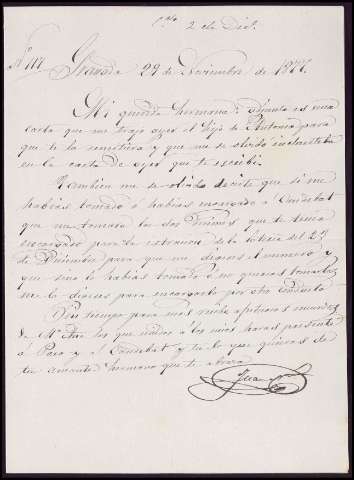 2 de Dic.
Nº 117 Granada 29 de Noviembre de 1877.
Mi querida hermana: Adjunta es una
carta que me trajo ayer el hijo de Antonia para
que te la remitiera y que me se olvidó incluirtela
en la carta de ayer que te escribí.
Tambien me se olvidó decirte que si me
habias tomado ó habias encargado á
que me tomara los dos que te tenia
encargado para la estraccion de la loteria del 23
de Diciembre para que me dijeras el numero y
que sino lo habias tomado ó no quieras tomarlos
me lo dijeras para encargarlo por otro conducto.
Sin tiempo para mas recibe afectuosas
de Mª los que unidos á los mios haras presente
á Paco y al y tu lo que quieras de
tu amante hermano que te adora
Juan